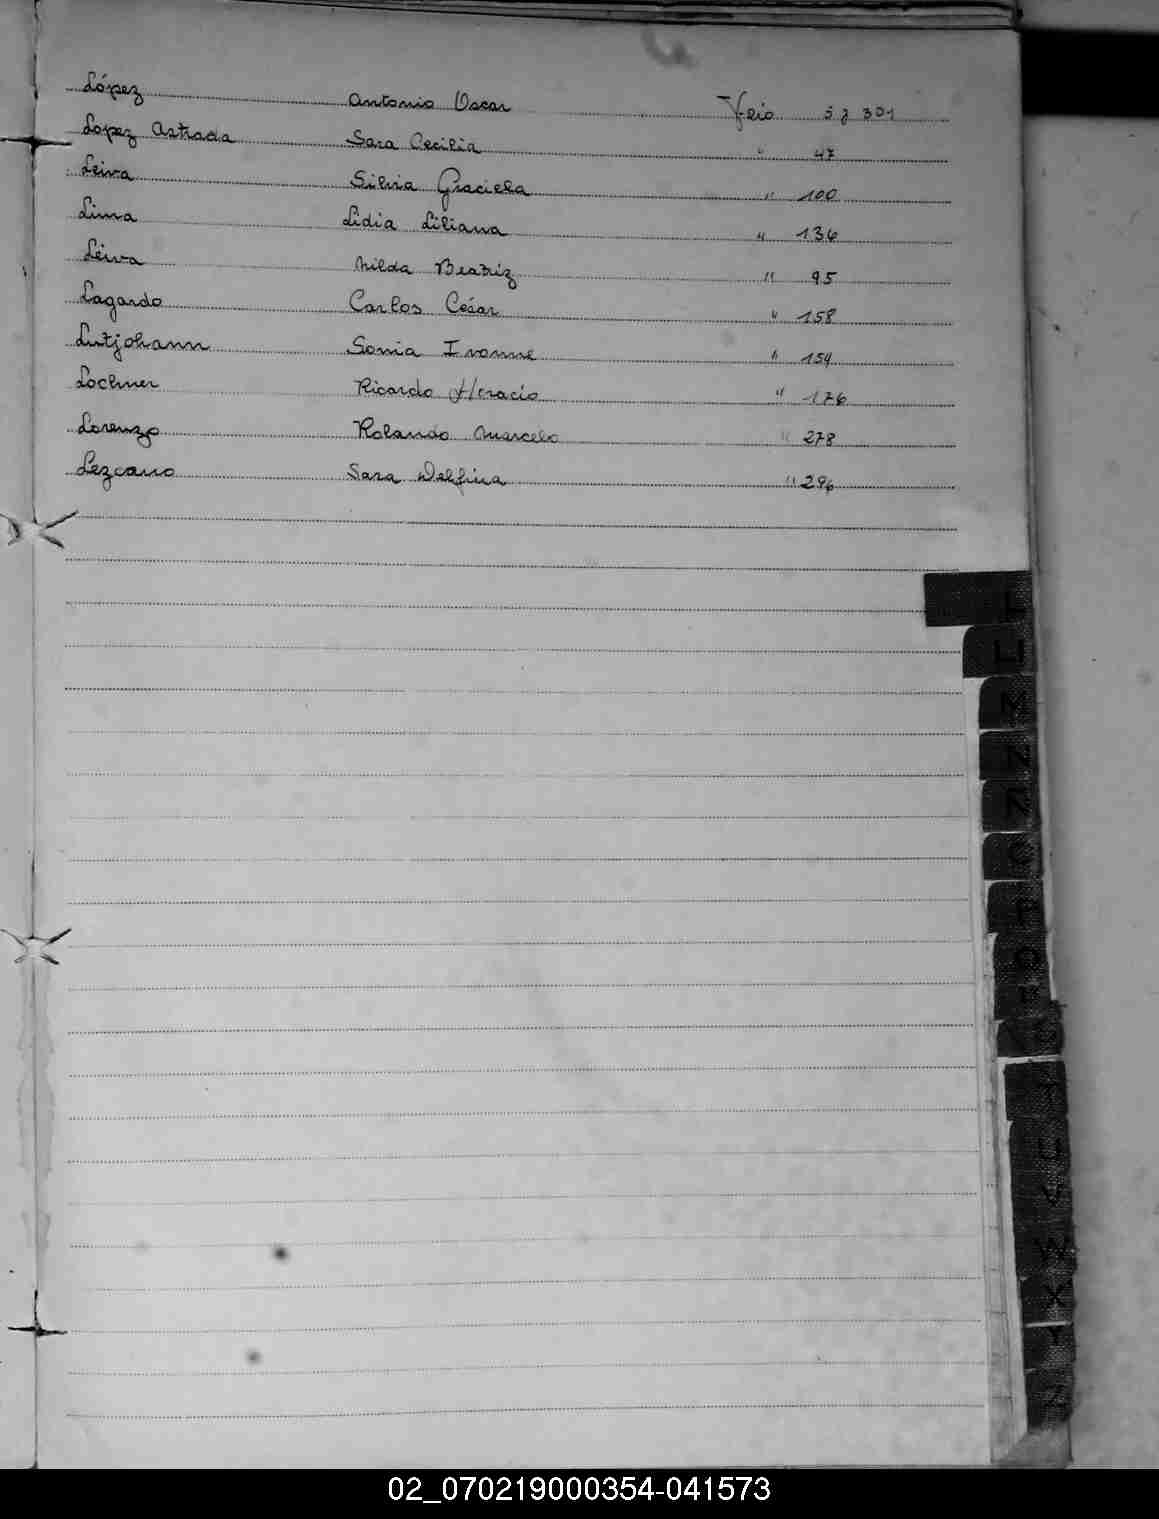 López Antonio Oscar Folio 5 y 301
Lopez Astrada Sara Cecilia " 47
Leiva Silvia Graciela " 100
Lima Lidia Liliana " 136
Leiva Nilda Beatriz " 95
Lagardo Carlos César " 158
Lutjohann Sonia Ivonne " 154
Lochner Ricardo Horacio " 176
Lorenzo Rolando Marcelo " 278
Lezcano Sara Delfina " 296
L
LL
M
N
Ñ
O
P
Q
R
T
U
V
W
X
Y
Z
02_070219000354-041573